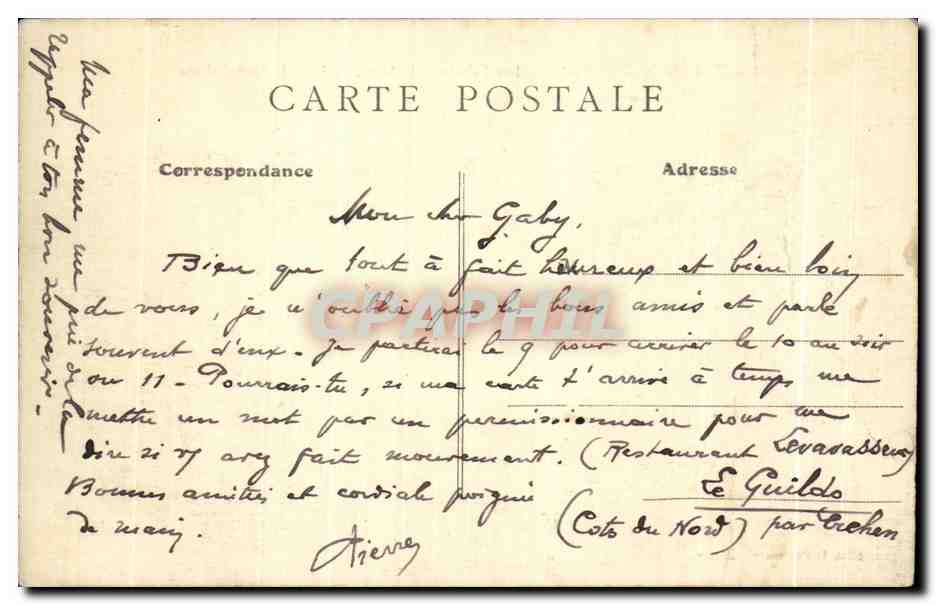 CARTE POSTALE
Correspondance
Adresse
Mon cher Gaby,
Bien que tout à fait heureux et bien loin
de vous, je n'oublie pas les bons amis et parle
souvent d'eux - Je partirai le 9 pour arriver le 10 au soir
ou 11 - Pourrais-tu, si ma carte t'arrive à temps me
mettre un mot par un permissionnaire pour me
dire si vs avez fait mouvement. (Restaurant Levavasseur
Le Guildo
(Cotes du Nord) par
Bonnes amitiés et cordiale poignée
de main.
Pierre
Ma femme me prie de la
rappeler à ton bon souvenir -
CPAPHIL